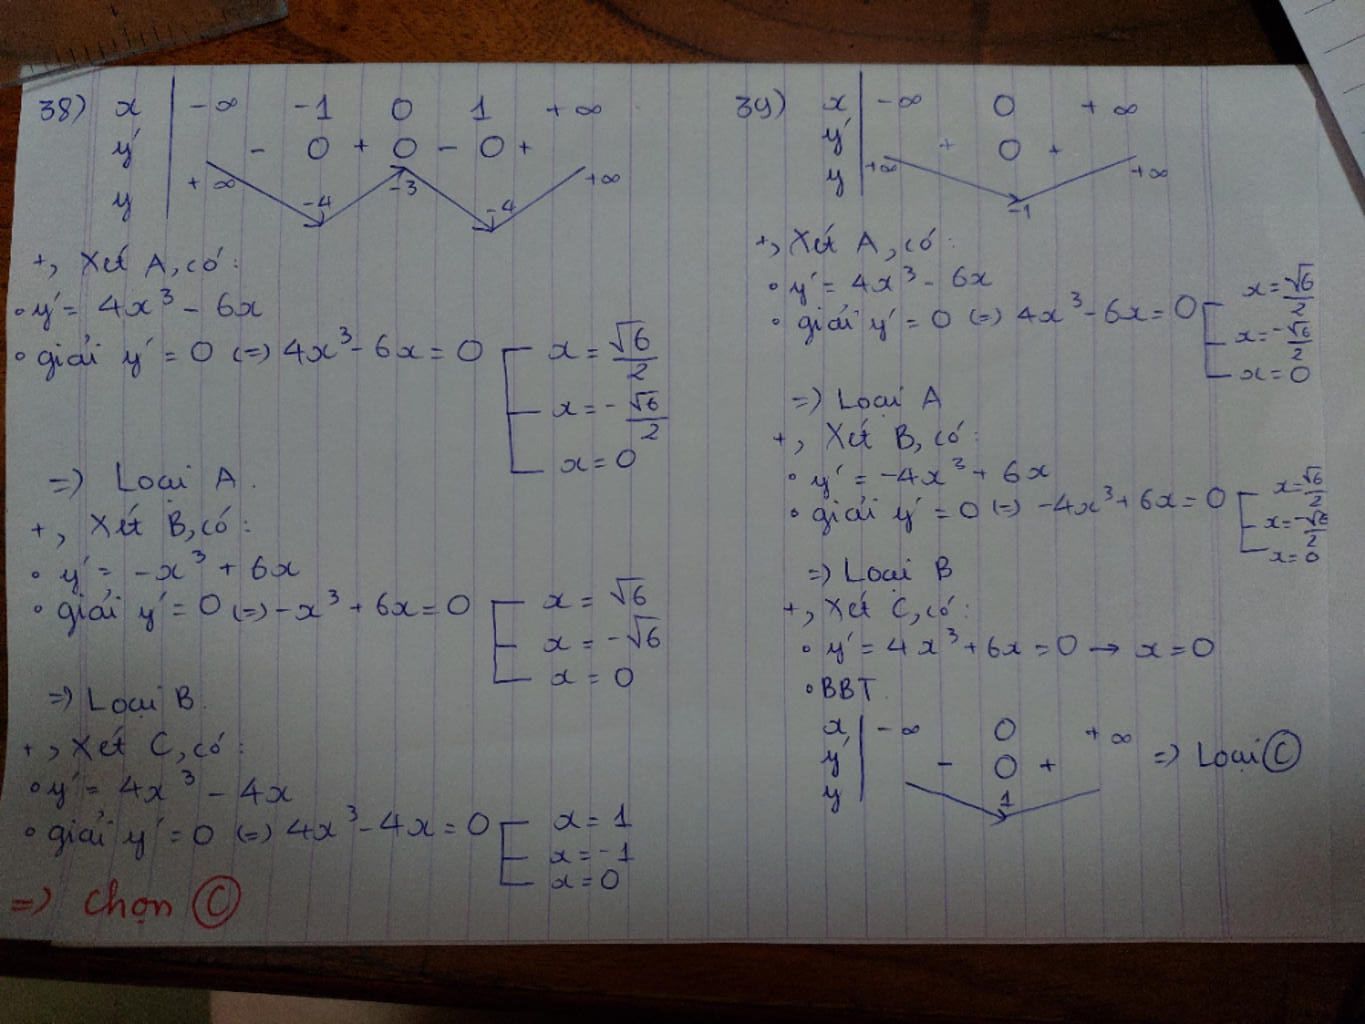 38) x -∞ -1 0 1 +∞
y' - 0 + 0 - 0 +
y +∞ -4 -3 -4 +∞
+, Xét A, có:
• y' = 4x³ - 6x
• giải y' = 0 (=) 4x³ - 6x = 0 [ x = √6/2
x = -√6/2
x = 0
=) Loại A.
+, Xét B, có:
• y' = -x³ + 6x
• giải y' = 0 (=) -x³ + 6x = 0 [ x = √6
x = -√6
x = 0
=) Loại B.
+, Xét C, có:
• y' = 4x³ - 4x
• giải y' = 0 (=) 4x³ - 4x = 0 [ x = 1
x = -1
x = 0
=) Chọn C
39) x -∞ 0 +∞
y' + 0 +
y +∞ -1 +∞
+, Xét A, có:
• y' = 4x³ - 6x
• giải y' = 0 (=) 4x³ - 6x = 0 [ x = √6/2
x = -√6/2
x = 0
=) Loại A
+, Xét B, có:
• y' = -4x³ + 6x
• giải y' = 0 (=) -4x³ + 6x = 0 [ x = √6/2
x = -√6/2
x = 0
=) Loại B
+, Xét C, có:
• y' = 4x³ + 6x = 0 → x = 0
• BBT
x -∞ 0 +∞
y' - 0 + =) Loại C
y 1